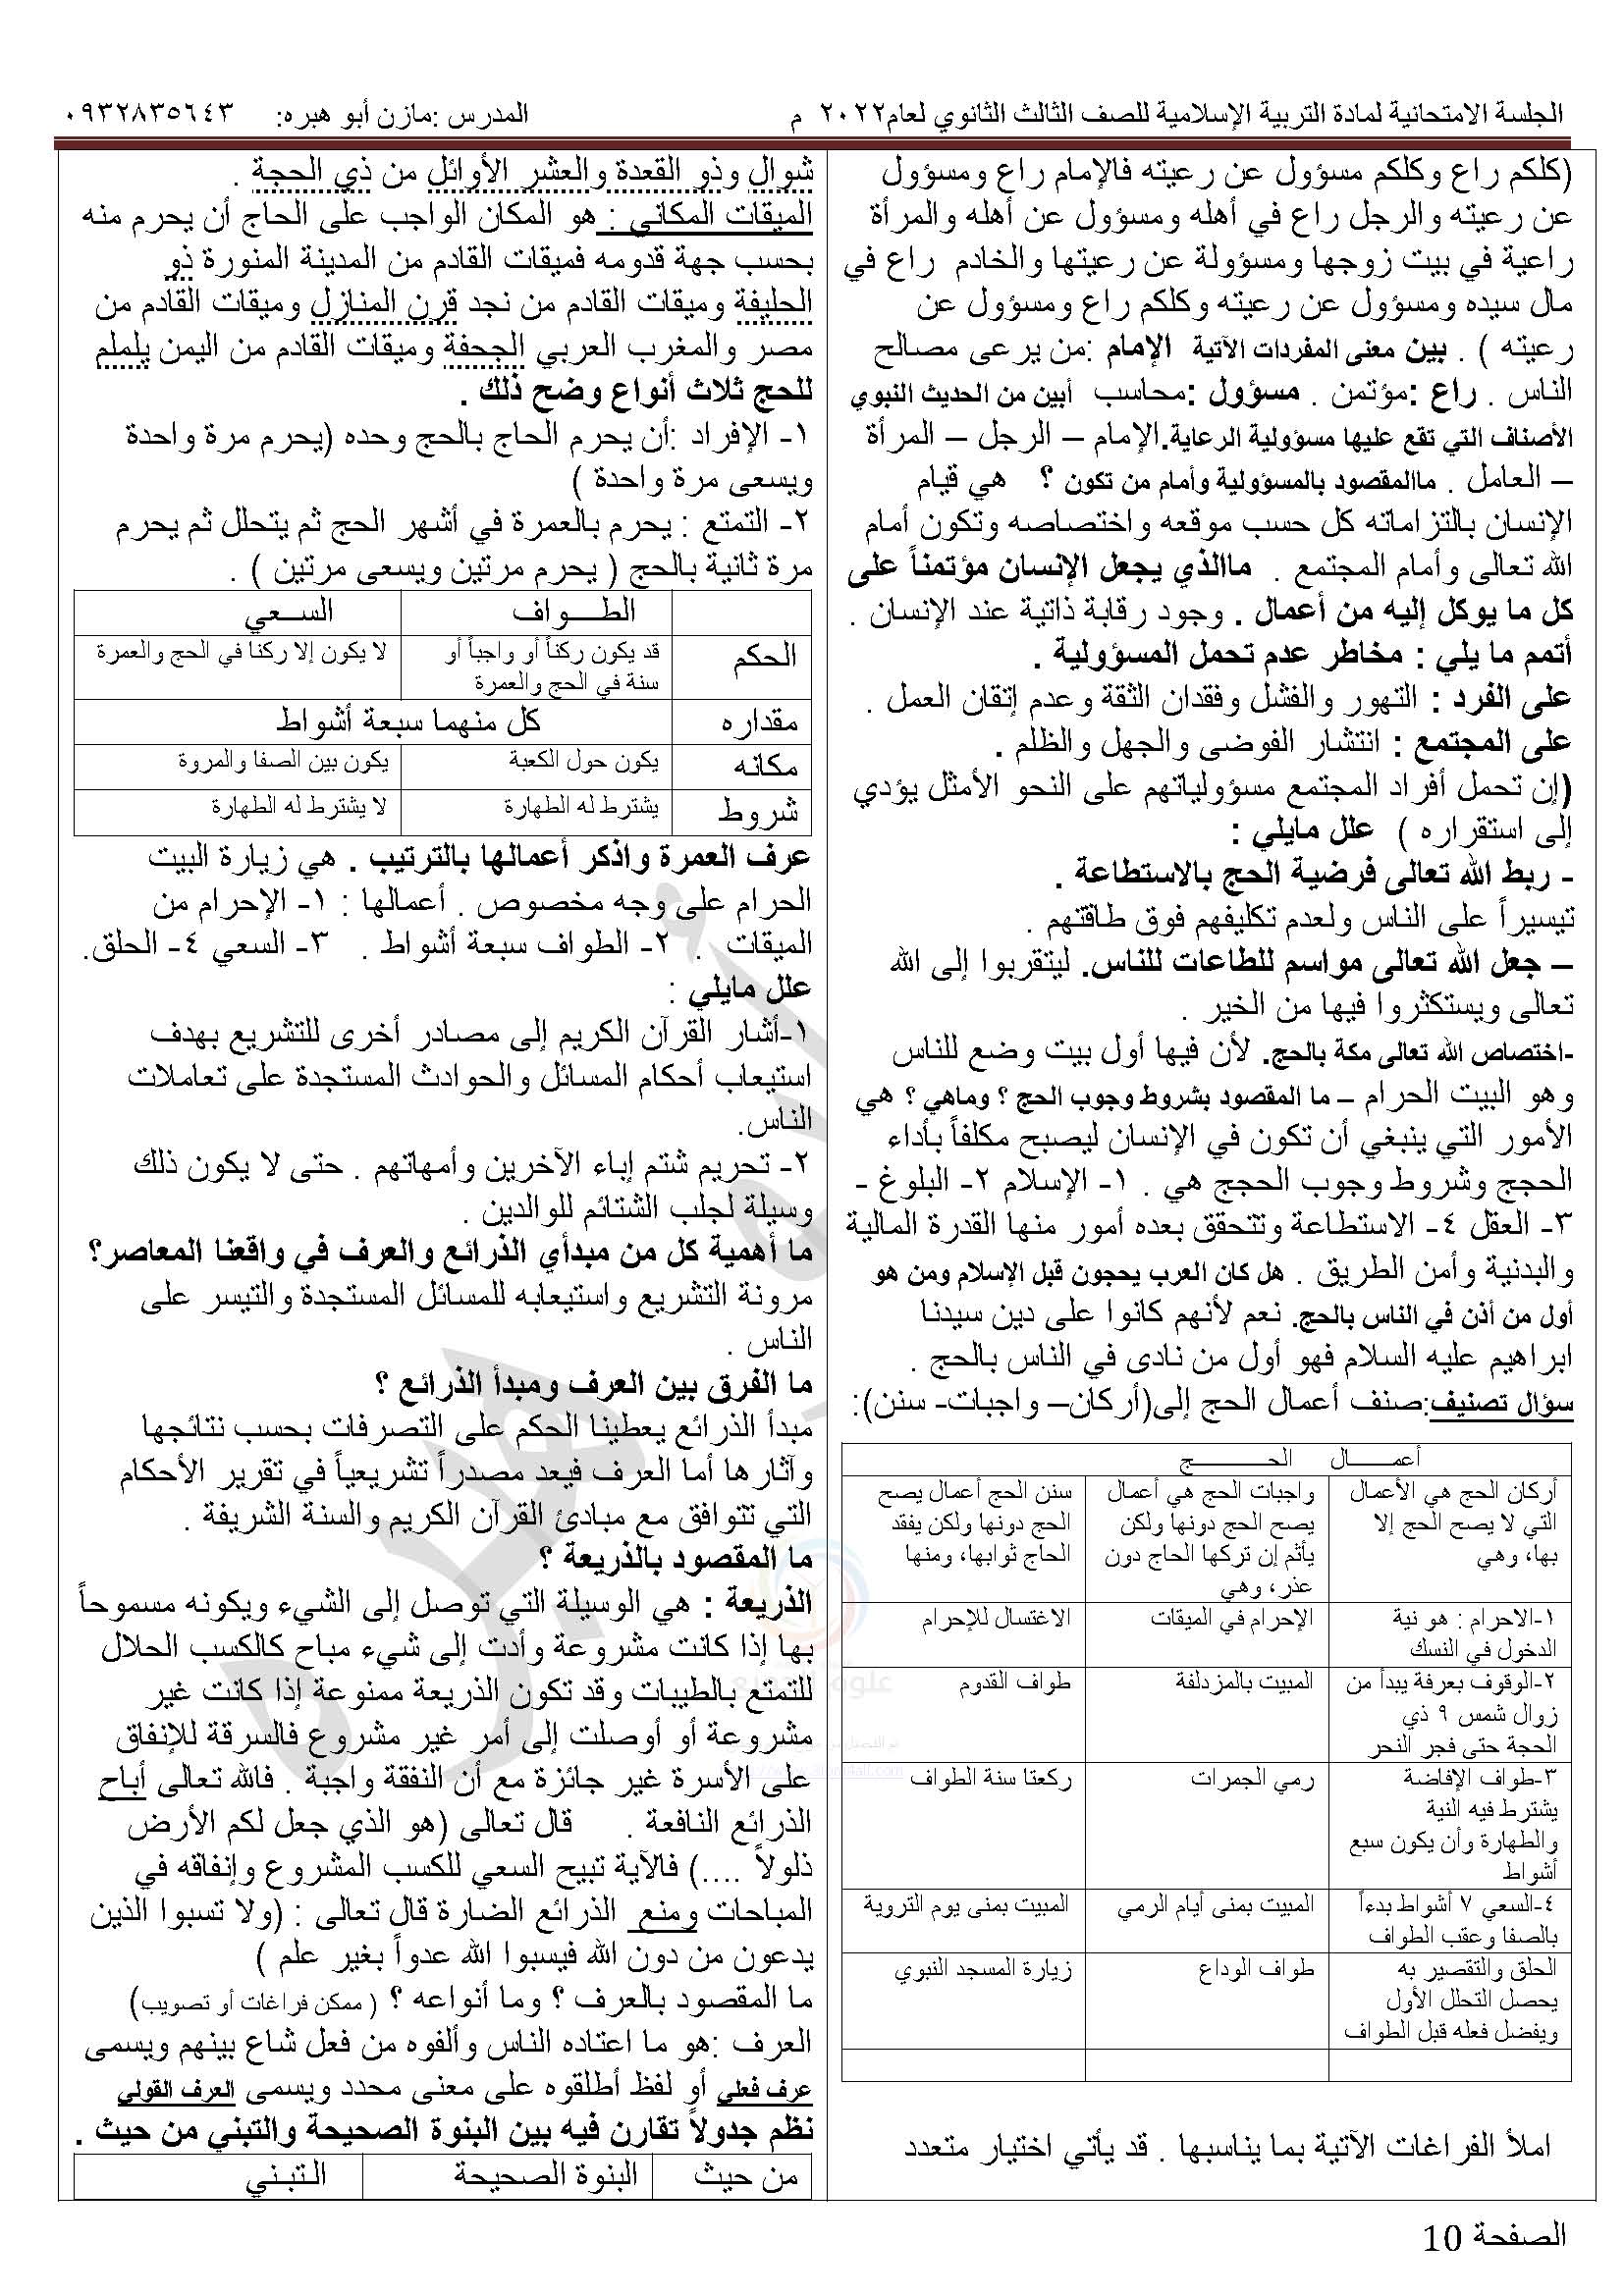 الجلسة الامتحانية لمادة التربية الإسلامية للصف الثالث الثانوي لعام٢٠٢٢ م المدرس :مازن أبو هبره: ٠٩٣٢٨٣٥٦٤٣
(كلكم راع وكلكم مسؤول عن رعيته فالإمام راع ومسؤول
عن رعيته والرجل راع في أهله ومسؤول عن أهله والمرأة
راعية في بيت زوجها ومسؤولة عن رعيتها والخادم راع في
مال سيده ومسؤول عن رعيته وكلكم راع ومسؤول عن
رعيته ) . بين معنى المفردات الآتية الإمام :من يرعى مصالح
الناس . راع :مؤتمن . مسؤول :محاسب أبين من الحديث النبوي
الأصناف التي تقع عليها مسؤولية الرعاية.الإمام – الرجل – المرأة
– العامل . ماالمقصود بالمسؤولية وأمام من تكون ؟ هي قيام
الإنسان بالتزاماته كل حسب موقعه واختصاصه وتكون أمام
الله تعالى وأمام المجتمع . ماالذي يجعل الإنسان مؤتمناً على
كل ما يوكل إليه من أعمال . وجود رقابة ذاتية عند الإنسان .
أتمم ما يلي : مخاطر عدم تحمل المسؤولية .
على الفرد : التهور والفشل وفقدان الثقة وعدم إتقان العمل .
على المجتمع : انتشار الفوضى والجهل والظلم .
(إن تحمل أفراد المجتمع مسؤولياتهم على النحو الأمثل يؤدي
إلى استقراره ) علل مايلي :
- ربط الله تعالى فرضية الحج بالاستطاعة .
تيسيراً على الناس ولعدم تكليفهم فوق طاقتهم .
– جعل الله تعالى مواسم للطاعات للناس. ليتقربوا إلى الله
تعالى ويستكثروا فيها من الخير .
-اختصاص الله تعالى مكة بالحج. لأن فيها أول بيت وضع للناس
وهو البيت الحرام – ما المقصود بشروط وجوب الحج ؟ وماهي ؟ هي
الأمور التي ينبغي أن تكون في الإنسان ليصبح مكلفاً بأداء
الحجج وشروط وجوب الحجج هي . ١- الإسلام ٢- البلوغ -
٣- العقل ٤- الاستطاعة وتتحقق بعده أمور منها القدرة المالية
والبدنية وأمن الطريق . هل كان العرب يحجون قبل الإسلام ومن هو
أول من أذن في الناس بالحج. نعم لأنهم كانوا على دين سيدنا
ابراهيم عليه السلام فهو أول من نادى في الناس بالحج .
سؤال تصنيف:صنف أعمال الحج إلى(أركان– واجبات- سنن):
أعمــــال الحــــــج
أركان الحج هي الأعمال التي لا يصح الحج إلا بها، وهي
واجبات الحج هي أعمال يصح الحج دونها ولكن يأثم إن تركها الحاج دون عذر، وهي
سنن الحج أعمال يصح الحج دونها ولكن يفقد الحاج ثوابها، ومنها
١-الاحرام : هو نية الدخول في النسك
الإحرام في الميقات
الاغتسال للإحرام
٢-الوقوف بعرفة يبدأ من زوال شمس ٩ ذي الحجة حتى فجر النحر
المبيت بالمزدلفة
طواف القدوم
٣-طواف الإفاضة يشترط فيه النية والطهارة وأن يكون سبع أشواط
رمي الجمرات
ركعتا سنة الطواف
٤-السعي ٧ أشواط بدءاً بالصفا وعقب الطواف
المبيت بمنى أيام الرمي
المبيت بمنى يوم التروية
الحلق والتقصير به يحصل التحلل الأول ويفضل فعله قبل الطواف
طواف الوداع
زيارة المسجد النبوي
املأ الفراغات الآتية بما يناسبها . قد يأتي اختيار متعدد
شوال وذو القعدة والعشر الأوائل من ذي الحجة .
الميقات المكاني : هو المكان الواجب على الحاج أن يحرم منه
بحسب جهة قدومه فميقات القادم من المدينة المنورة ذو
الحليفة وميقات القادم من نجد قرن المنازل وميقات القادم من
مصر والمغرب العربي الجحفة وميقات القادم من اليمن يلملم
للحج ثلاث أنواع وضح ذلك .
١- الإفراد :أن يحرم الحاج بالحج وحده (يحرم مرة واحدة
ويسعى مرة واحدة )
٢- التمتع : يحرم بالعمرة في أشهر الحج ثم يتحلل ثم يحرم
مرة ثانية بالحج ( يحرم مرتين ويسعى مرتين ) .
الطـــواف السـعي
الحكم قد يكون ركناً أو واجباً أو سنة في الحج والعمرة لا يكون إلا ركنا في الحج والعمرة
مقداره كل منهما سبعة أشواط
مكانه يكون حول الكعبة يكون بين الصفا والمروة
شروط يشترط له الطهارة لا يشترط له الطهارة
عرف العمرة واذكر أعمالها بالترتيب . هي زيارة البيت
الحرام على وجه مخصوص . أعمالها : ١- الإحرام من
الميقات . ٢- الطواف سبعة أشواط . ٣- السعي ٤- الحلق.
علل مايلي :
١-أشار القرآن الكريم إلى مصادر أخرى للتشريع بهدف
استيعاب أحكام المسائل والحوادث المستجدة على تعاملات
الناس.
٢- تحريم شتم إباء الآخرين وأمهاتهم . حتى لا يكون ذلك
وسيلة لجلب الشتائم للوالدين .
ما أهمية كل من مبدأي الذرائع والعرف في واقعنا المعاصر؟
مرونة التشريع واستيعابه للمسائل المستجدة والتيسر على
الناس .
ما الفرق بين العرف ومبدأ الذرائع ؟
مبدأ الذرائع يعطينا الحكم على التصرفات بحسب نتائجها
وآثارها أما العرف فيعد مصدراً تشريعياً في تقرير الأحكام
التي تتوافق مع مبادئ القرآن الكريم والسنة الشريفة .
ما المقصود بالذريعة ؟
الذريعة : هي الوسيلة التي توصل إلى الشيء ويكونه مسموحاً
بها إذا كانت مشروعة وأدت إلى شيء مباح كالكسب الحلال
للتمتع بالطيبات وقد تكون الذريعة ممنوعة إذا كانت غير
مشروعة أو أوصلت إلى أمر غير مشروع فالسرقة للإنفاق
على الأسرة غير جائزة مع أن النفقة واجبة . فالله تعالى أباح
الذرائع النافعة . قال تعالى (هو الذي جعل لكم الأرض
ذلولاً ....) فالآية تبيح السعي للكسب المشروع وإنفاقه في
المباحات ومنع الذرائع الضارة قال تعالى : (ولا تسبوا الذين
يدعون من دون الله فيسبوا الله عدواً بغير علم )
ما المقصود بالعرف ؟ وما أنواعه ؟ ( ممكن فراغات أو تصويب)
العرف :هو ما اعتاده الناس وألفوه من فعل شاع بينهم ويسمى
عرف فعلي أو لفظ أطلقوه على معنى محدد ويسمى العرف القولي
نظم جدولاً تقارن فيه بين البنوة الصحيحة والتبني من حيث .
من حيث البنوة الصحيحة التبني
الصفحة 10